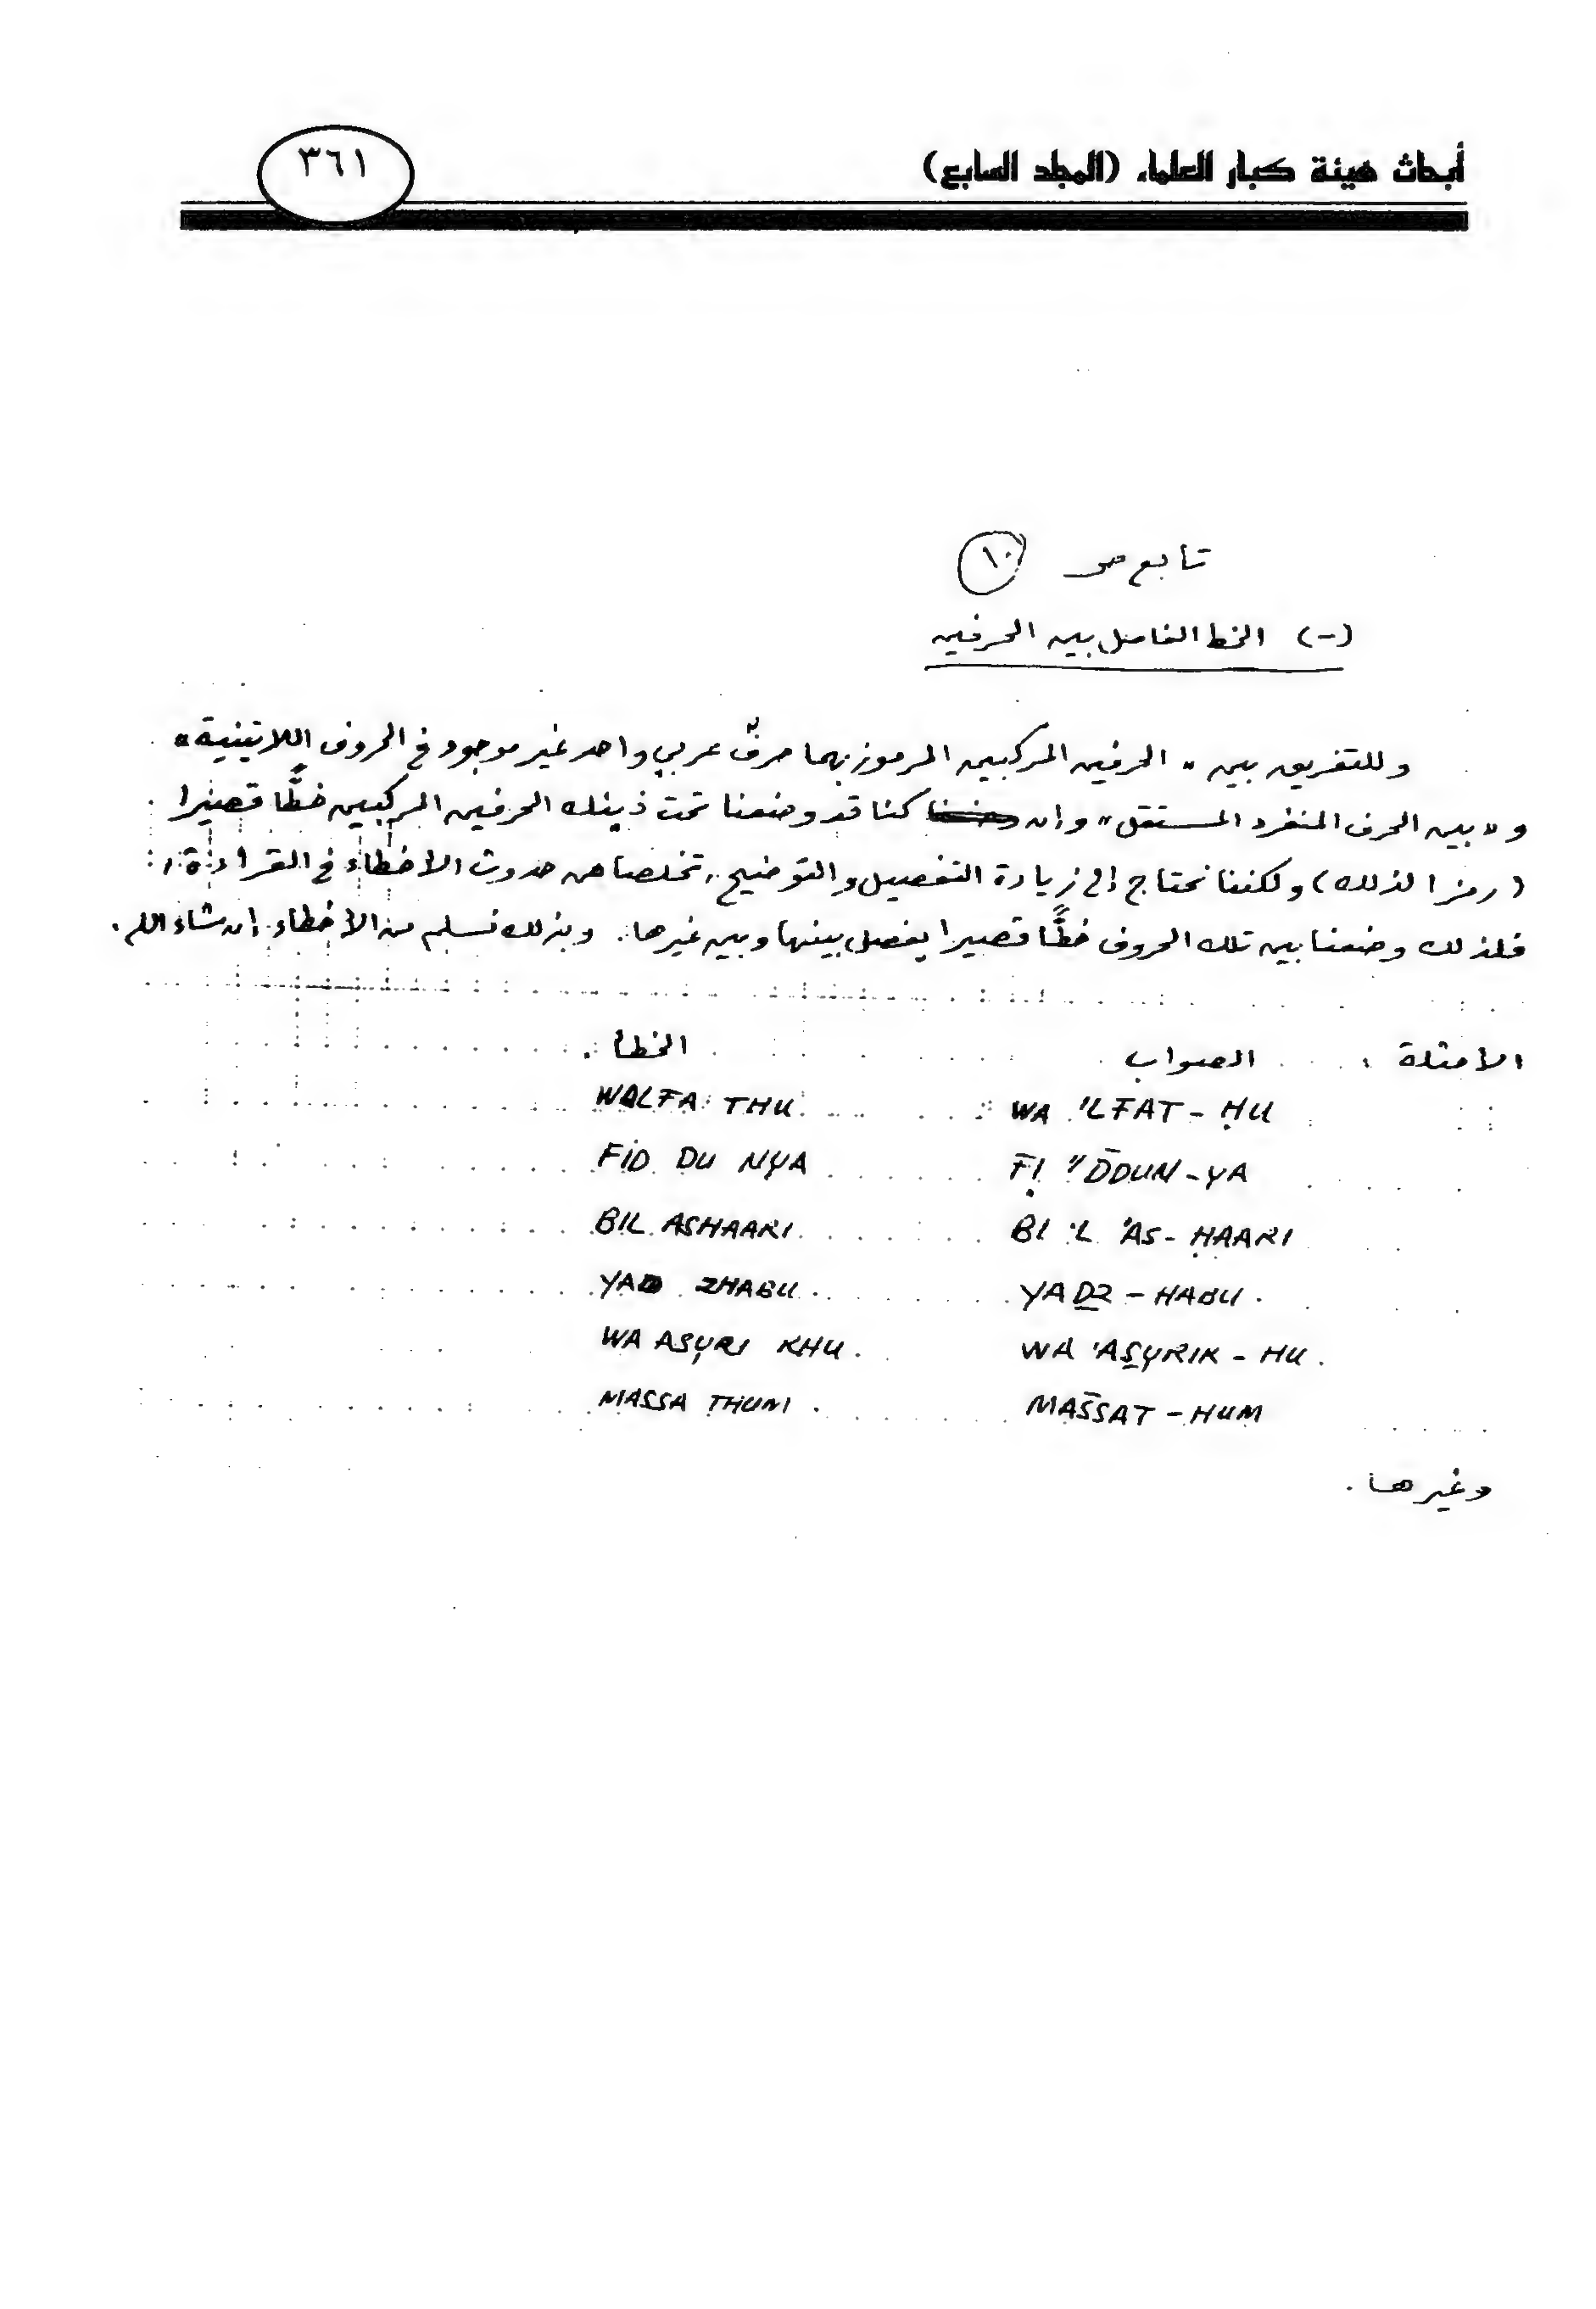 أبحاث هيئة كبار العلماء (المجلد السابع)
٣٦١
تابع ص ١٠
(-) الخط الفاصل بين الحرفين
وللتفريق بين " الحرفين المركبين المرموز بهما حرفٌ عربي واحد غير موجود في الحروف اللاتينية "
و " بين الحرف المنفرد المستقل " وإن كنا قد وضعنا تحت ذينك الحرفين المركبين خطًّا قصيرا
( رمزا لذلك ) ولكننا نحتاج إلى زيادة التفصيل والتوضيح ، تخلصا من حدوث الأخطاء في القراءة ،
فلذلك وضعنا بين تلك الحروف خطًّا قصيرا يفصل بينها وبين غيرها . وبذلك نسلم من الأخطاء إن شاء الله .
الأمثلة : الصواب الخطأ .
WA 'LFAT - ḤU WALFA THU
F̄Ị "D̄DUN-YA FID DU NYA
BI 'L 'AS - ḤAARI BIL ASHAARI
YAD̲Z̲ - HABU . YAD ZHABU
WA 'AS̲Y̲RIK - HU . WA ASYRI KHU .
MAS̄SAT - HUM MASSA THUM .
وغيرها .